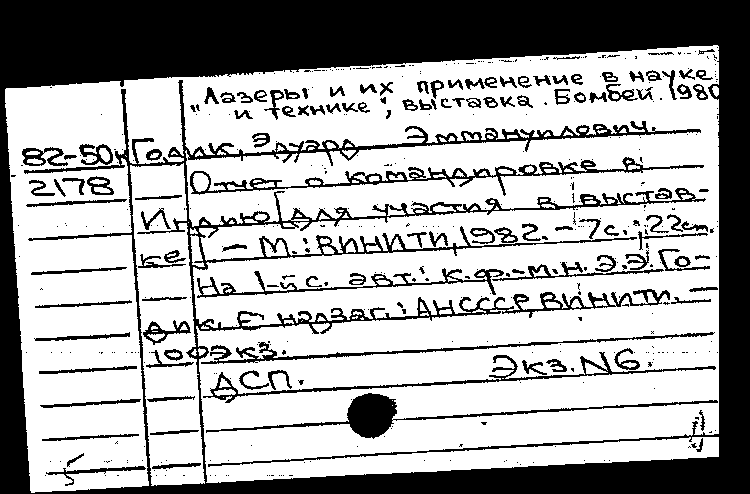 "Лазеры и их применение в науке
и технике", выставка. Бомбей. 1980
82-50к Годик, Эдуард Эммануилович.
2178 Отчет о командировке в
Индию [для участия в выстав-
ке] - М.: ВИНИТИ, 1982. - 7с.; 22см.
На 1-й с. авт.: к.ф.-м.н. Э.Э. Го-
дик. Надзаг.: АН СССР, ВИНИТИ. -
100 экз.
ДСП. Экз. N6.
5